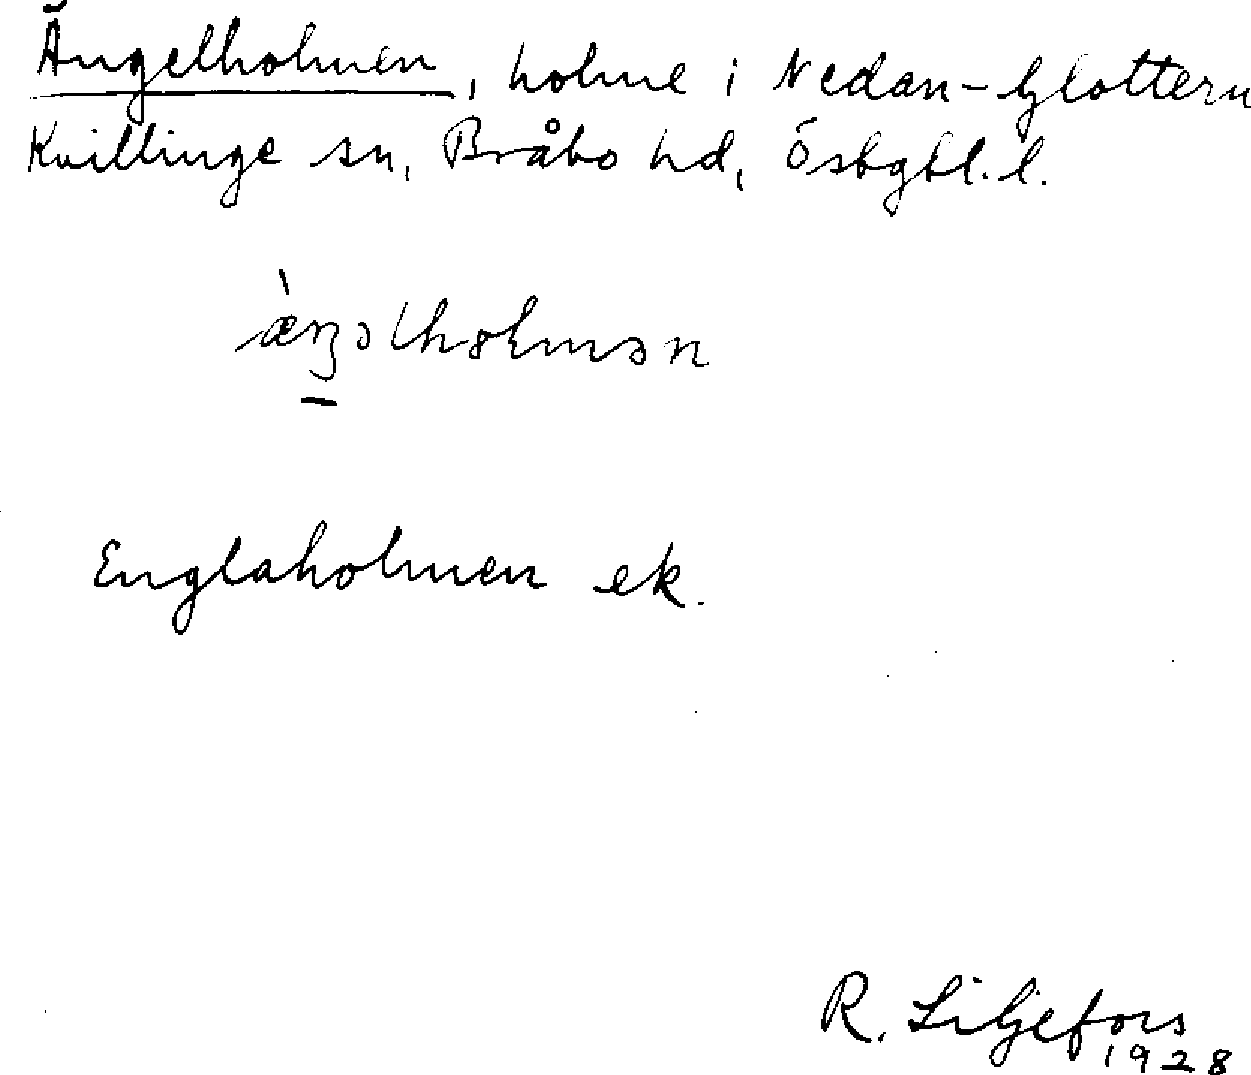 Ängelholmen, holme i Nedan-Glottern
Kvillinge sn, Bråbo hd, Östgtl. l.
Englaholmen ek.
R. Liljefors
1928